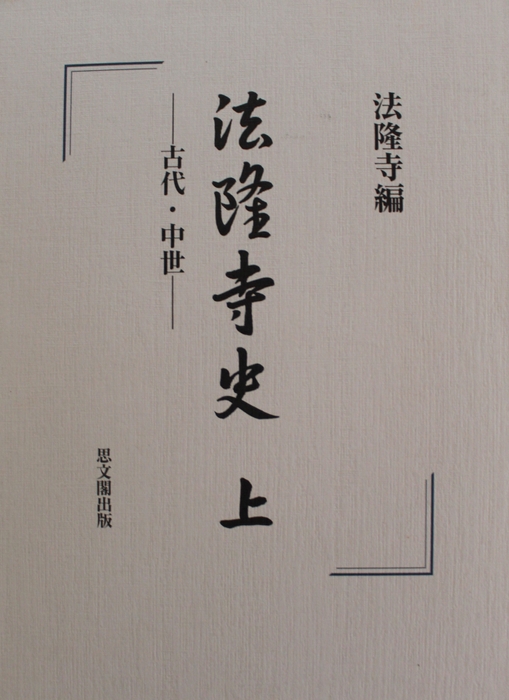 法隆寺編
法隆寺史 上
——古代・中世——
思文閣出版